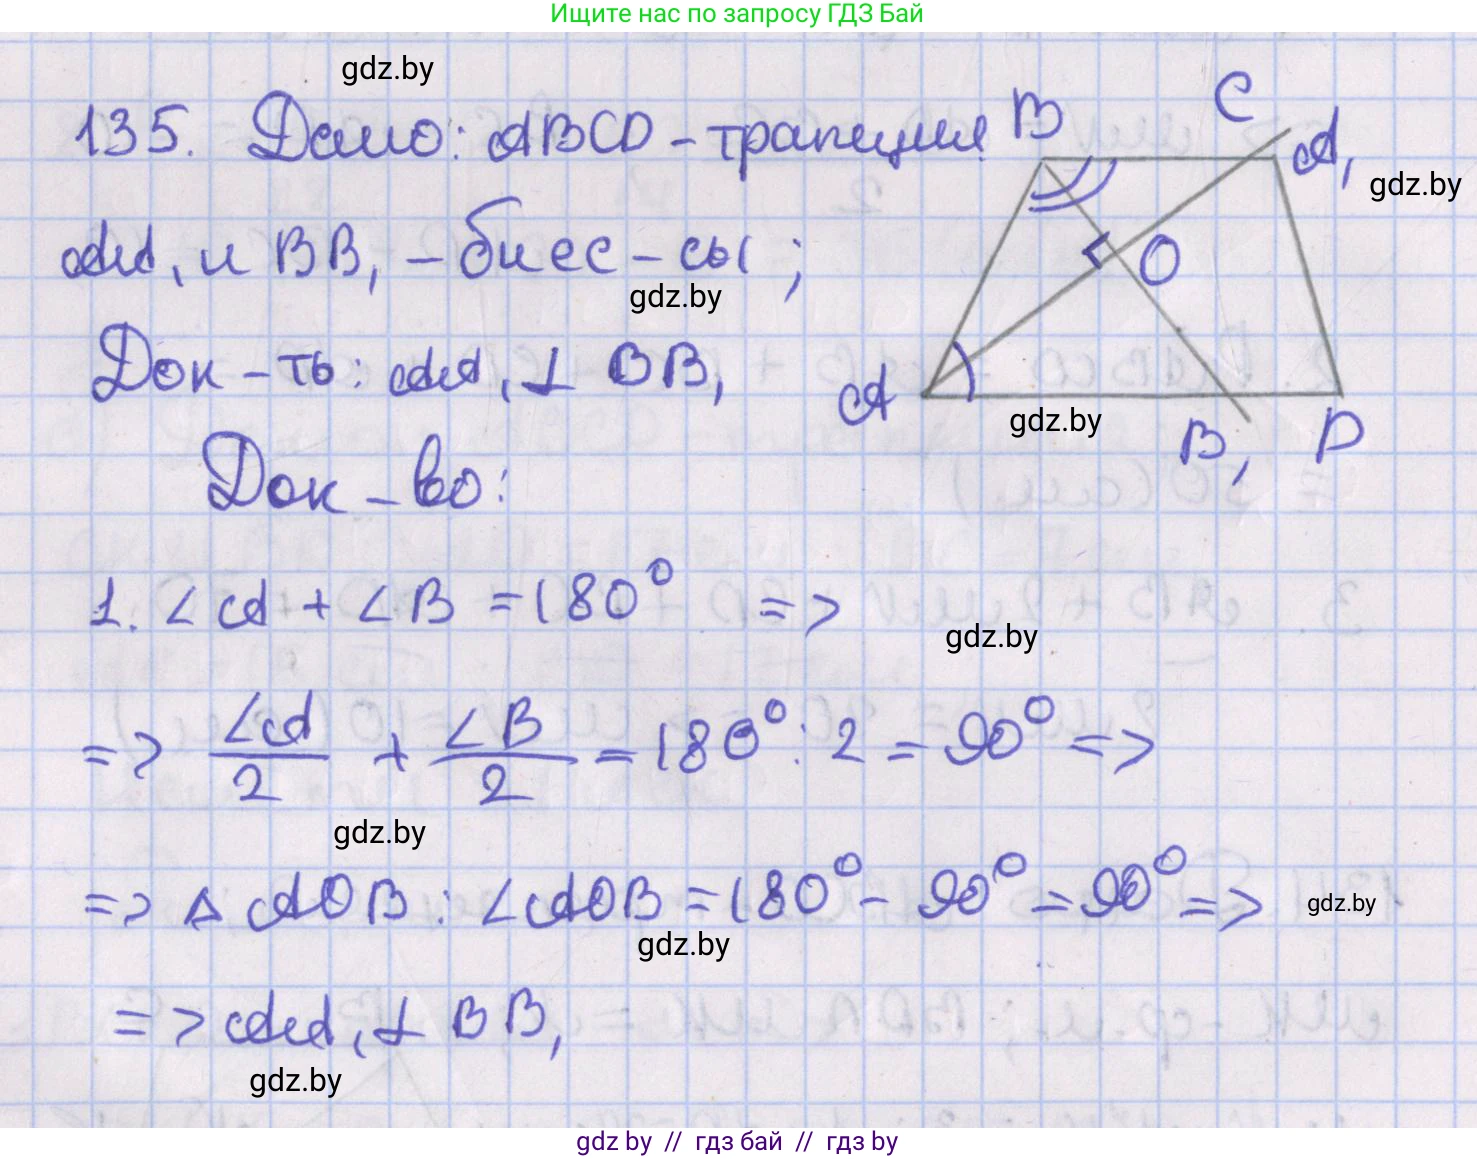 Ищите нас по запросу ГДЗ Бай
gdz.by
135. Дано: ABCD - трапеция
B C A₁
gdz.by
AA₁ и BB₁ - биссс - сы;
O
gdz.by
Док - ть: AA₁ ⊥ BB₁
A
gdz.by
B₁ D
Док - во:
1. ∠A + ∠B = 180° =>
gdz.by
=> ∠A/2 + ∠B/2 = 180° : 2 = 90° =>
gdz.by
=> △ AOB : ∠AOB = 180° - 90° = 90° =>
gdz.by
gdz.by
=> AA₁ ⊥ BB₁
gdz.by
gdz by // гдз бай // гдз by